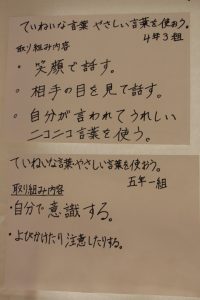 ていねいな言葉やさしい言葉を使おう。
4年3組
取り組み内容
・笑顔で話す。
・相手の目を見て話す。
・自分が言われてうれしい
ニコニコ言葉を使う。
ていねいな言葉やさしい言葉を使おう。
五年一組
取り組み内容
・自分で意識する。
・よびかけたり注意したりする。